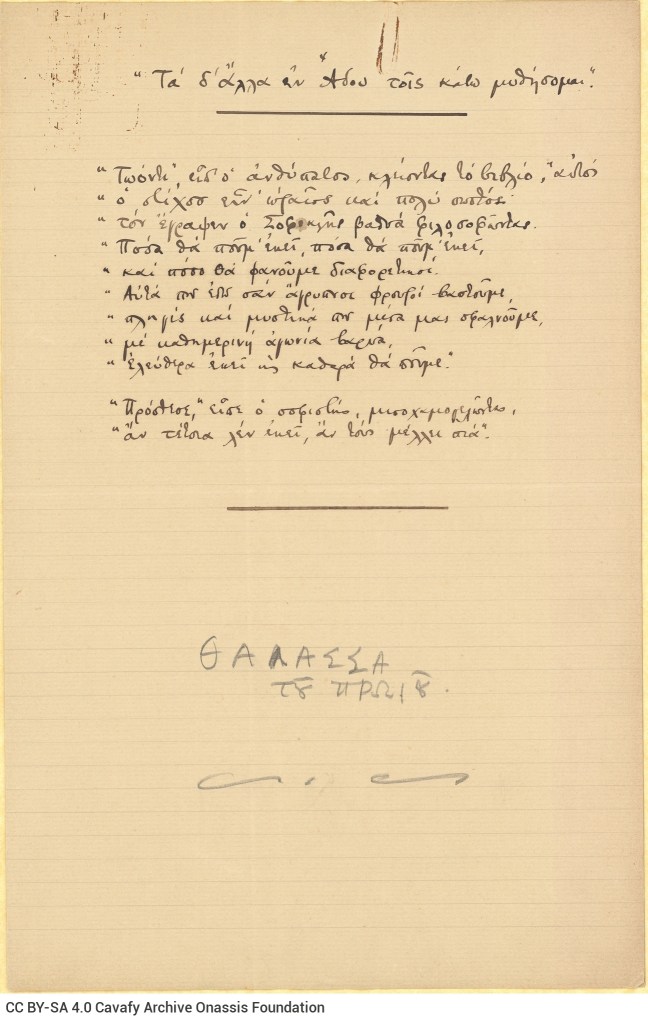 "Τα δ' ἄλλα ἐν Ἅδου τοῖς κάτω μυθήσομαι".
"Τωόντι", εἶπ' ὁ ἀνθύπατος, κλείοντας τὸ βιβλίο, "αὐτὸς
"ὁ στίχος εἶν' ὡραῖος καὶ πολὺ σωστός·
"τὸν ἔγραψεν ὁ Σοφοκλῆς βαθυὰ φιλοσοφῶντας.
"Πόσα θὰ ποῦμ' ἐκεῖ, πόσα θὰ ποῦμ' ἐκεῖ,
"καὶ πόσο θὰ φανοῦμε διαφορετικοί.
"Αὐτὰ ποῦ ἐδῶ σὰν ἄγρυπνοι φρουροὶ βαστοῦμε,
"πληγὲς καὶ μυστικὰ ποῦ μέσα μας σφαλνοῦμε,
"μὲ καθημερινὴ ἀγωνία βαρυά,
"ἐλεύθερα ἐκεῖ κι καθαρὰ θὰ ποῦμε".
"Πρόσθεσε," εἶπε ὁ σοφιστής, μισοχαμογελῶντας,
"ἂν τέτοια λέν ἐκεῖ, ἂν τοὺς μέλλει πιά".
ΘΑΛΑΣΣΑ
ΤȢ ΠΡΩΙȢ.